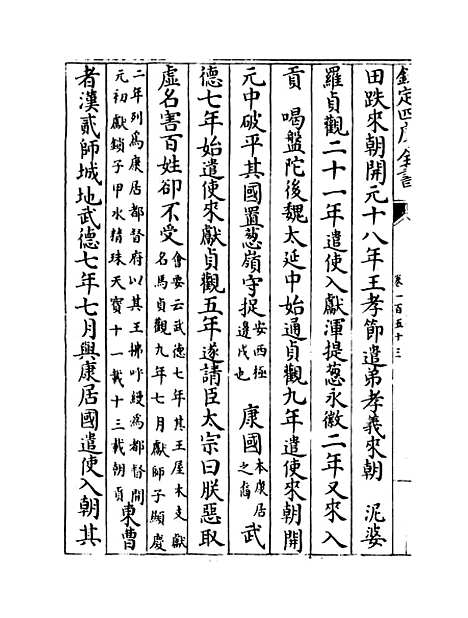 欽定四庫全書
卷一百五十三
田跌來朝開元十八年王孝節遣弟孝義來朝　泥婆
羅貞觀二十一年遣使入獻渾提蔥永徽二年又來入
貢　喝盤陀後魏太延中始通貞觀九年遣使來朝開
元中破平其國置蔥嶺守捉安西極邊戍也　康國本康居之裔武
德七年始遣使來獻貞觀五年遂請臣太宗曰朕惡取
虛名害百姓卻不受會要云武德七年其王屋木支獻名馬貞觀九年七月獻師子顯慶
二年列為康居都督府以其王拂呼縵為都督開元初獻鎖子甲水精珠天寶十一載十三載朝貢　東曹
者漢貳師城地武德七年七月與康居國遣使入朝其